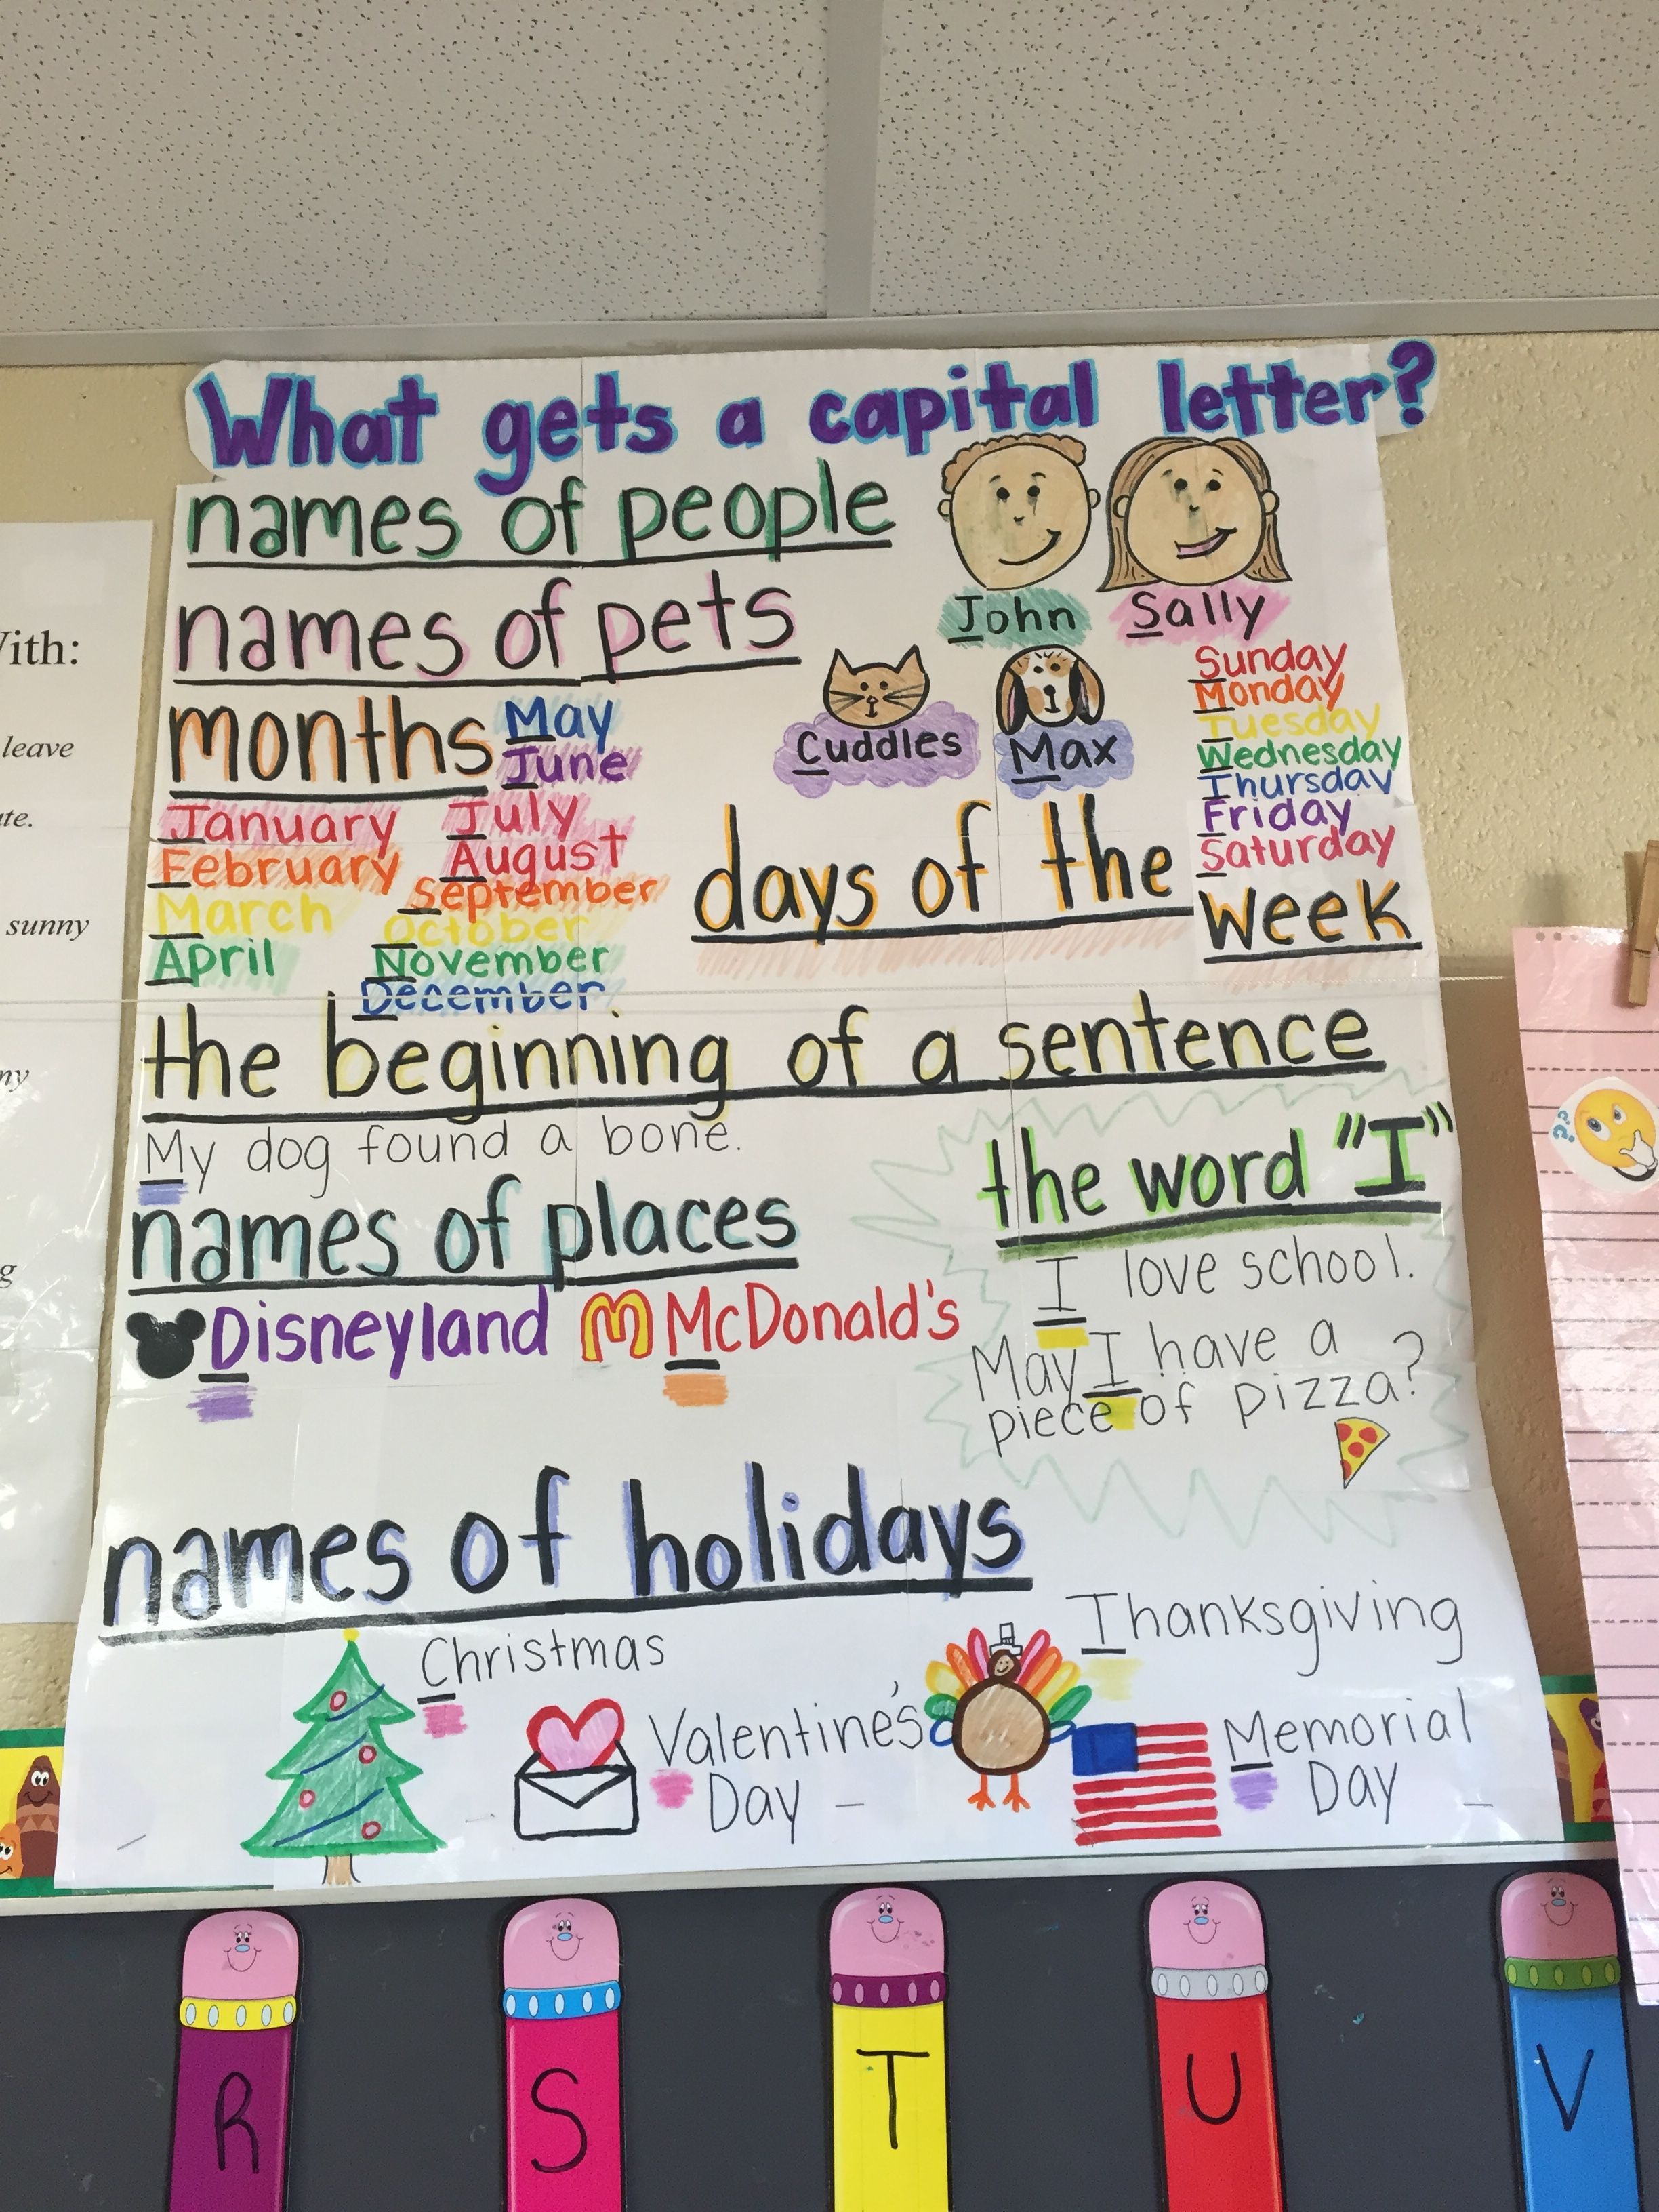 What gets a capital letter?
names of people
John Sally
names of pets
Cuddles Max
months
May
June
January
February
March
April
July
August
September
October
November
December
Sunday
Monday
Tuesday
Wednesday
Thursday
Friday
Saturday
days of the
week
the beginning of a sentence
My dog found a bone.
the word "I"
I love school.
May I have a
piece of pizza?
names of places
Disneyland McDonald's
names of holidays
Christmas
Valentine's
Day
Thanksgiving
Memorial
Day
With:
leave
sunny
R S T U V